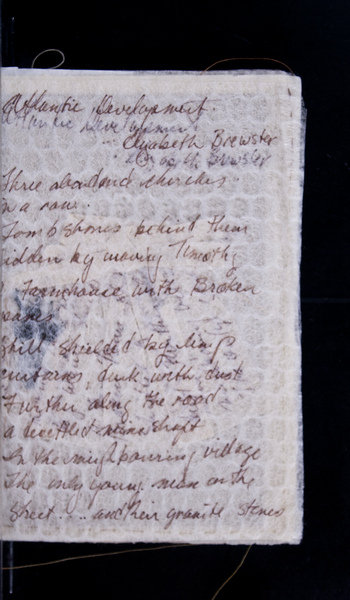 Atlantic Development.
Elizabeth Brewster
Three abandond churches
in a row.
Tombstones behind them
idden by moving Timothy
Farmhouse with Broken
panes
still shielded by limp
curtains, dark with dust
Further along the road
a derelict mine shaft
In the neighbouring village
the only young man on the
street .... and their granite stones